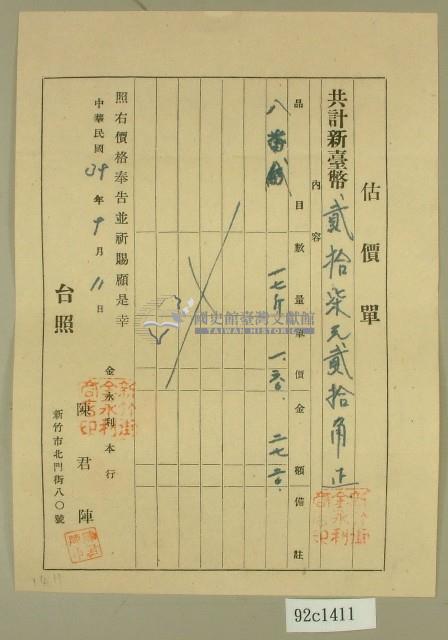 估價單
共計新臺幣貳拾柒元貳拾角正
內容
品目 數量 單價 金額 備註
八番線 一七斤 一.六〇. 二七.二〇.
照右價格奉告並祈賜顧是幸
中華民國39年9月11日
台照
金永利本行
陳君陣
新竹市北門街八〇號
新竹街金永利商店印
國史館臺灣文獻館
TAIWAN HISTORICA
92c1411